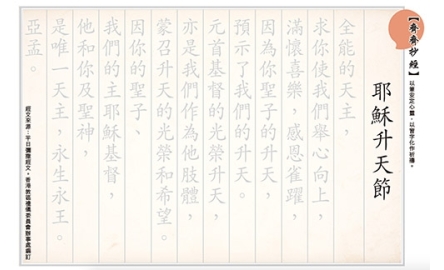 【齊齊抄經】以書安定心靈，以習字化作祈禱。
耶穌升天節
全能的天主，
求你使我們舉心向上，
滿懷喜樂，感恩雀躍，
因為你聖子的升天，
預示了我們的升天。
元首基督的光榮升天，
亦是我們作為他肢體，
蒙召升天的光榮和希望。
因你的聖子、
我們的主耶穌基督，
他和你及聖神，
是唯一天主，永生永王。
亞孟。
經文來源：平日彌撒經文，香港教區禮儀委員會辦事處編訂